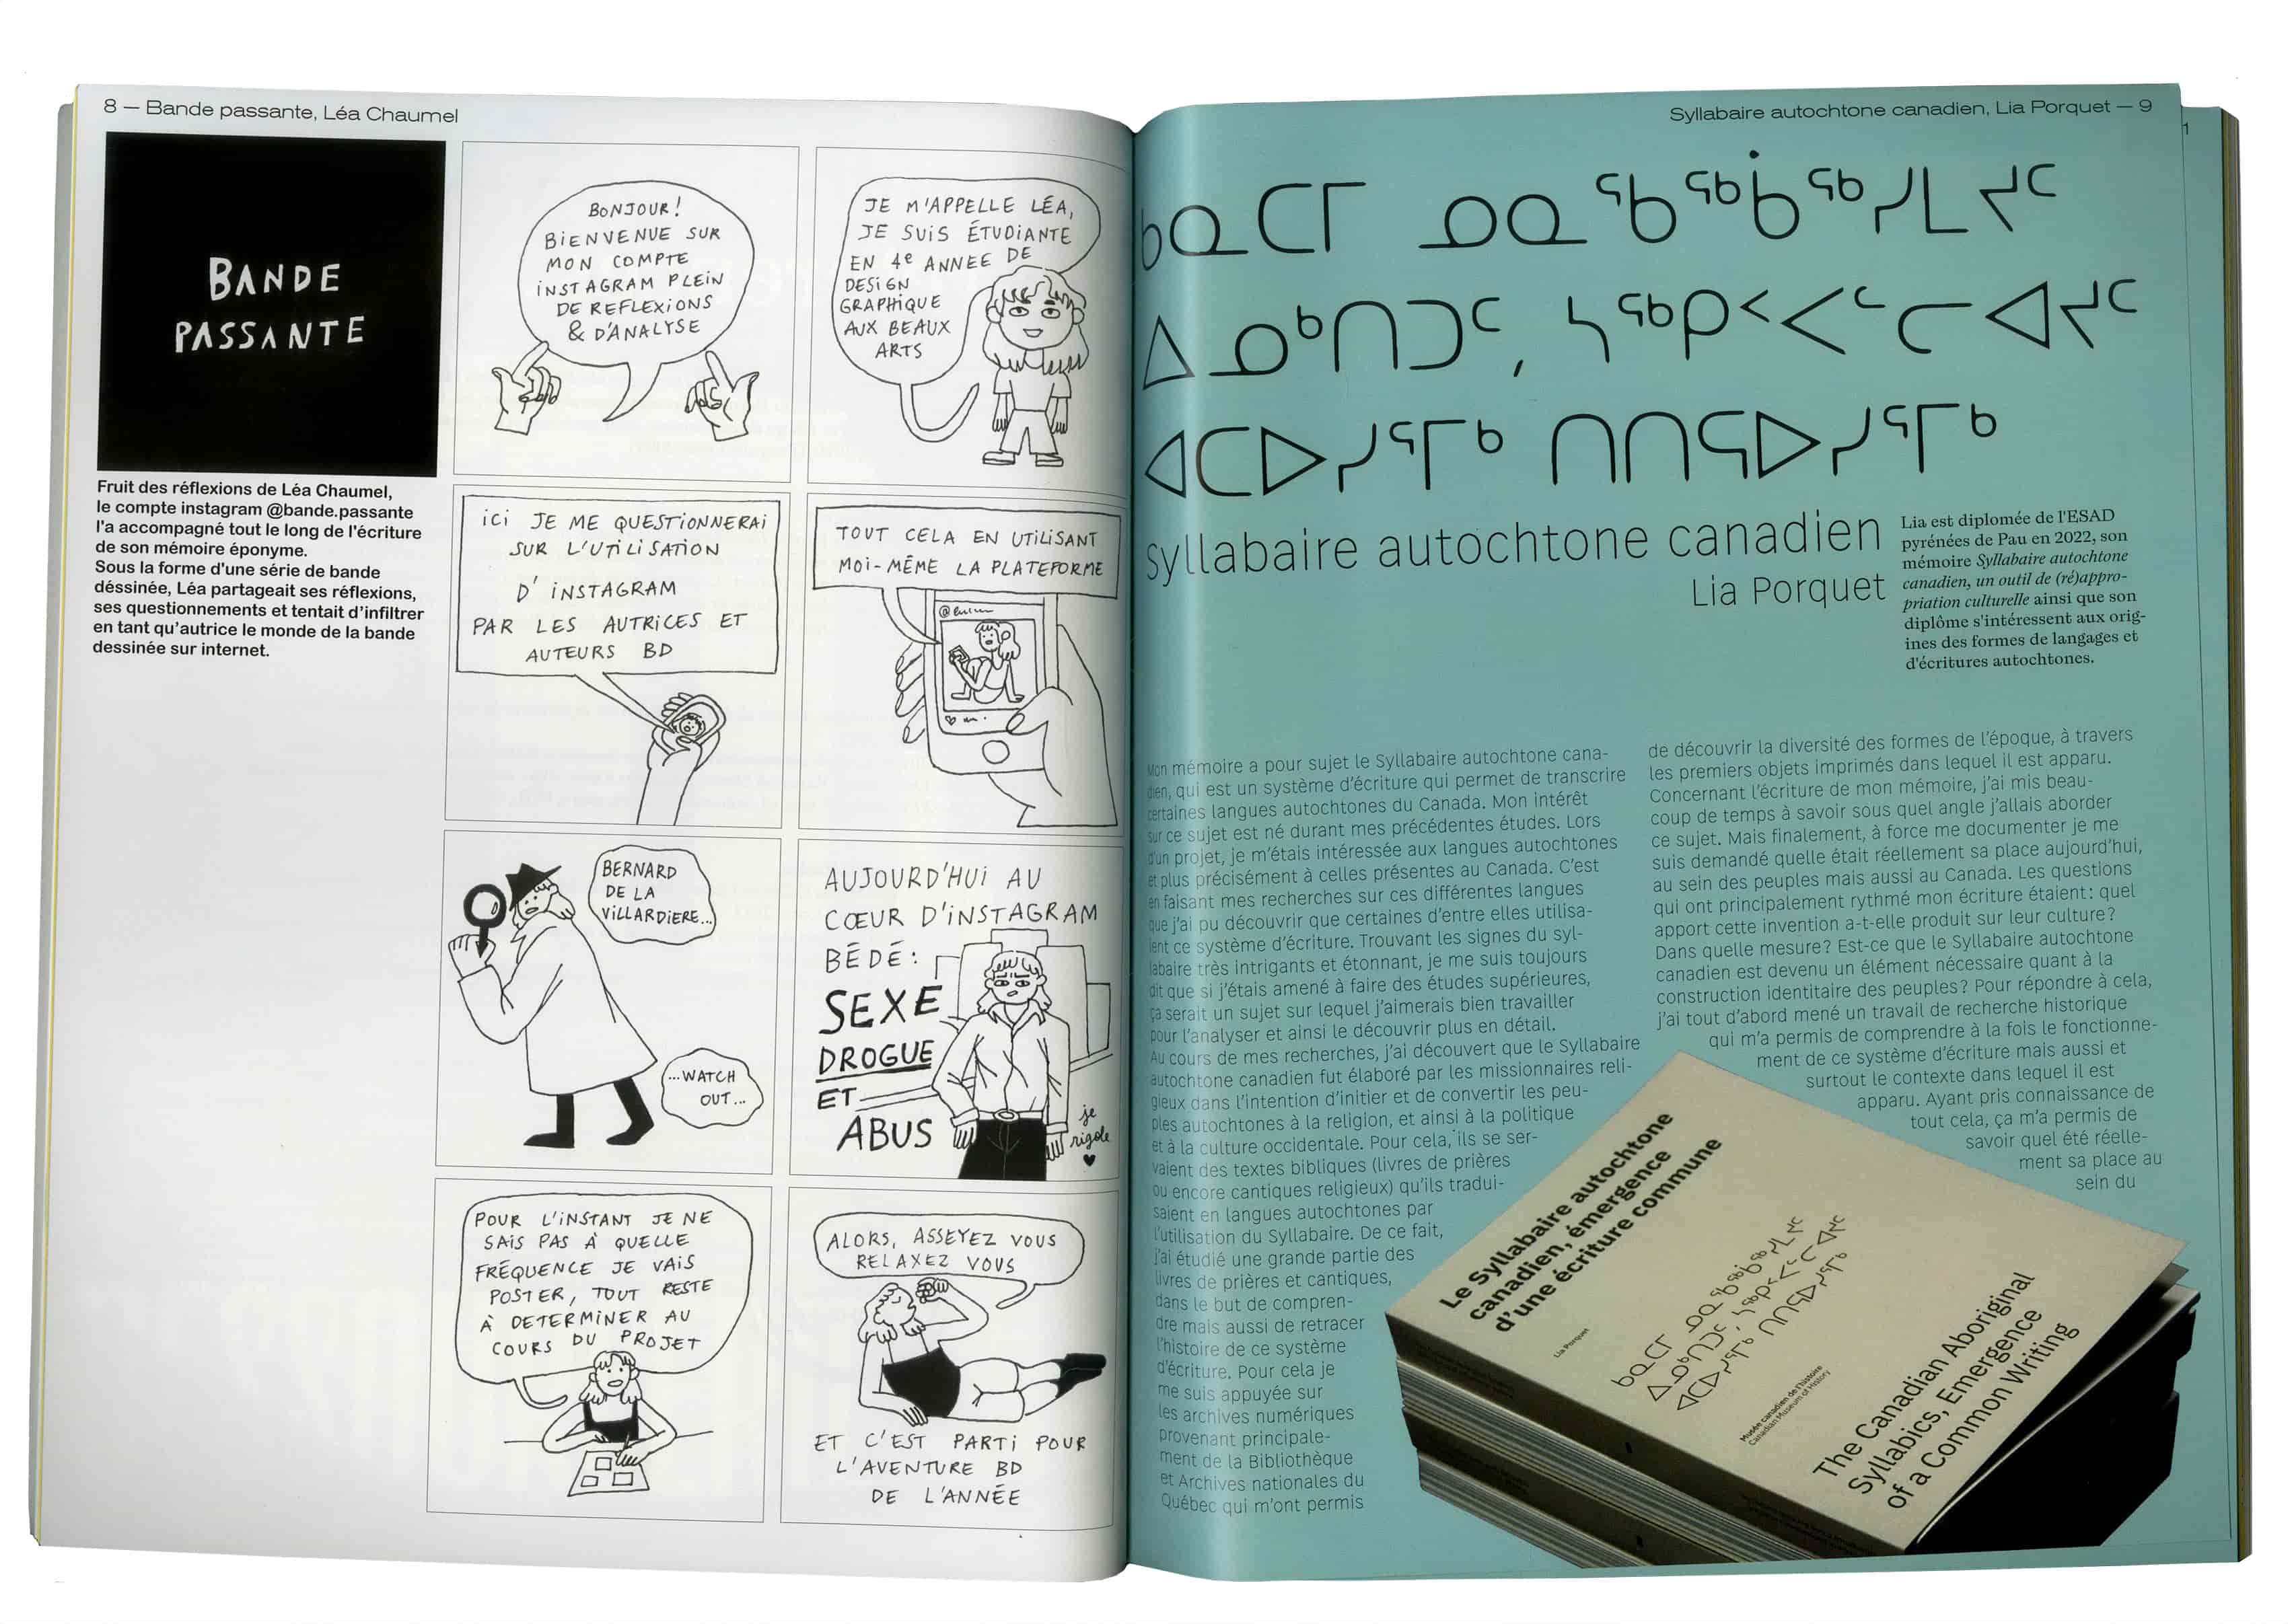 8 — Bande passante, Léa Chaumel
BANDE
PASSANTE
Fruit des réflexions de Léa Chaumel,
le compte instagram @bande.passante
l'a accompagné tout le long de l'écriture
de son mémoire éponyme.
Sous la forme d'une série de bande
déssinée, Léa partageait ses réflexions,
ses questionnements et tentait d'infiltrer
en tant qu'autrice le monde de la bande
dessinée sur internet.
BONJOUR!
BIENVENUE SUR
MON COMPTE
INSTAGRAM PLEIN
DE REFLEXIONS
& D'ANALYSE
JE M'APPELLE LÉA,
JE SUIS ÉTUDIANTE
EN 4e ANNEE DE
DESIGN
GRAPHIQUE
AUX BEAUX
ARTS
ICI JE ME QUESTIONNERAI
SUR L'UTILISATION
D'INSTAGRAM
PAR LES AUTRICES ET
AUTEURS BD
TOUT CELA EN UTILISANT
MOI-MÊME LA PLATEFORME
BERNARD
DE LA
VILLARDIERE...
...WATCH
OUT...
AUJOURD'HUI AU
CŒUR D'INSTAGRAM
BÉDÉ:
SEXE
DROGUE
ET
ABUS
je
rigole
POUR L'INSTANT JE NE
SAIS PAS À QUELLE
FRÉQUENCE JE VAIS
POSTER, TOUT RESTE
À DETERMINER AU
COURS DU PROJET
ALORS, ASSEYEZ VOUS
RELAXEZ VOUS
ET C'EST PARTI POUR
L'AVENTURE BD
DE L'ANNÉE
Syllabaire autochtone canadien, Lia Porquet — 9
ᑲᓇᑕᒥ ᓄᓇᖃᖅᑳᖅᓯᒪᔪᑦ
ᐃᓄᒃᑎᑐᑦ, ᓴᖅᑭᑉᐸᓪᓕᐊᔪᑦ
ᐊᑕᐅᓯᕐᒥᒃ ᑎᑎᕋᐅᓯᕐᒥᒃ
Syllabaire autochtone canadien
Lia Porquet
Lia est diplomée de l'ESAD
pyrénées de Pau en 2022, son
mémoire Syllabaire autochtone
canadien, un outil de (ré)appro-
priation culturelle ainsi que son
diplôme s'intéressent aux orig-
ines des formes de langages et
d'écritures autochtones.
Mon mémoire a pour sujet le Syllabaire autochtone cana-
dien, qui est un système d'écriture qui permet de transcrire
certaines langues autochtones du Canada. Mon intérêt
sur ce sujet est né durant mes précédentes études. Lors
d'un projet, je m'étais intéressée aux langues autochtones
et plus précisément à celles présentes au Canada. C'est
en faisant mes recherches sur ces différentes langues
que j'ai pu découvrir que certaines d'entre elles utilisa-
ient ce système d'écriture. Trouvant les signes du syl-
labaire très intrigants et étonnant, je me suis toujours
dit que si j'étais amené à faire des études supérieures,
ça serait un sujet sur lequel j'aimerais bien travailler
pour l'analyser et ainsi le découvrir plus en détail.
Au cours de mes recherches, j'ai découvert que le Syllabaire
autochtone canadien fut élaboré par les missionnaires reli-
gieux dans l'intention d'initier et de convertir les peu-
ples autochtones à la religion, et ainsi à la politique
et à la culture occidentale. Pour cela, ils se ser-
vaient des textes bibliques (livres de prières
ou encore cantiques religieux) qu'ils tradui-
saient en langues autochtones par
l'utilisation du Syllabaire. De ce fait,
j'ai étudié une grande partie des
livres de prières et cantiques,
dans le but de compren-
dre mais aussi de retracer
l'histoire de ce système
d'écriture. Pour cela je
me suis appuyée sur
les archives numériques
provenant principale-
ment de la Bibliothèque
et Archives nationales du
Québec qui m'ont permis
de découvrir la diversité des formes de l'époque, à travers
les premiers objets imprimés dans lequel il est apparu.
Concernant l'écriture de mon mémoire, j'ai mis beau-
coup de temps à savoir sous quel angle j'allais aborder
ce sujet. Mais finalement, à force me documenter je me
suis demandé quelle était réellement sa place aujourd'hui,
au sein des peuples mais aussi au Canada. Les questions
qui ont principalement rythmé mon écriture étaient: quel
apport cette invention a-t-elle produit sur leur culture?
Dans quelle mesure? Est-ce que le Syllabaire autochtone
canadien est devenu un élément nécessaire quant à la
construction identitaire des peuples? Pour répondre à cela,
j'ai tout d'abord mené un travail de recherche historique
qui m'a permis de comprendre à la fois le fonctionne-
ment de ce système d'écriture mais aussi et
surtout le contexte dans lequel il est
apparu. Ayant pris connaissance de
tout cela, ça m'a permis de
savoir quel été réelle-
ment sa place au
sein du
Le Syllabaire autochtone
canadien, émergence
d'une écriture commune
Lia Porquet
ᑲᓇᑕᒥ ᓄᓇᖃᖅᑳᖅᓯᒪᔪᑦ
ᐃᓄᒃᑎᑐᑦ, ᓴᖅᑭᑉᐸᓪᓕᐊᔪᑦ
ᐊᑕᐅᓯᕐᒥᒃ ᑎᑎᕋᐅᓯᕐᒥᒃ
Musée canadien de l'histoire
Canadian Museum of History
The Canadian Aboriginal
Syllabics, Emergence
of a Common Writing